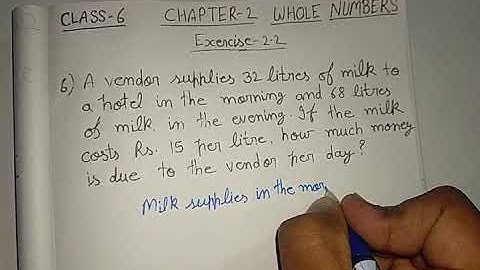 CLASS-6 CHAPTER-2 WHOLE NUMBERS
Exercise-2.2
6) A vendor supplies 32 litres of milk to
a hotel in the morning and 68 litres
of milk in the evening. If the milk
costs Rs. 15 per litre, how much money
is due to the vendor per day?
Milk supplies in the mor